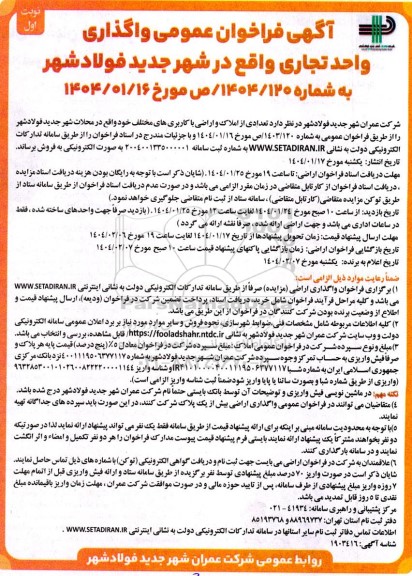 نوبت اول
آگهی فراخوان عمومی واگذاری
واحد تجاری واقع در شهر جدید فولادشهر
به شماره ۱۴۰۴/۱۲۰/ص مورخ ۱۴۰۴/۰۱/۱۶
شرکت عمران شهر جدید فولادشهر در نظر دارد تعدادی از املاک و اراضی با کاربری های مختلف خود واقع در محلات شهر جدید فولادشهر
را از طریق فراخوان عمومی به شماره ۱۴۰۳/۱۲۰/ص مورخ ۱۴۰۴/۰۱/۱۶ و با جزئیات مندرج در اسناد فراخوان را از طریق سامانه تدارکات
الکترونیکی WWW.SETADIRAN.IR به شماره ثبت سامانه ۲۰۰۴۰۰۱۳۳۵۰۰۰۰۰۱ به صورت الکترونیکی به فروش برساند.
تاریخ انتشار: یکشنبه مورخ ۱۴۰۴/۰۱/۱۷
مهلت دریافت اسناد فراخوان اراضی: تا ساعت ۱۹ مورخ ۱۴۰۴/۰۱/۲۵. (شایان ذکر است با توجه به رایگان بودن هزینه دریافت اسناد مزایده
، دریافت اسناد فراخوان از کارتابل متقاضی در زمان مقرر الزامی می باشد و در صورت عدم دریافت اسناد فراخوان از طریق سامانه ستاد از
طریق توکن مزایده متقاضی (کارتابل متقاضی) ، سامانه ستاد از ثبت نام متقاضی جلوگیری خواهد نمود.)
تاریخ بازدید: از ساعت ۱۰ صبح مورخ ۱۴۰۴/۰۱/۲۴ لغایت ساعت ۱۳ مورخ ۱۴۰۴/۰۱/۲۵ . (بازدید صرفاً جهت واحدهای ساخته شده ، فقط
در ساعات اداری می باشد و جهت اراضی ارائه شده صرفاً نقشه ارائه می گردد )
مهلت ارسال پیشنهاد قیمت: زمان تحویل پیشنهادها از تاریخ ۱۴۰۴/۰۱/۱۷ لغایت ساعت ۱۹ مورخ ۱۴۰۴/۰۲/۰۶
تاریخ بازگشایی فراخوان اراضی: زمان بازگشایی پاکتهای پیشنهاد قیمت ساعت ۱۰ صبح مورخ ۱۴۰۴/۰۲/۰۷
تاریخ اعلام به برنده: یکشنبه مورخ ۱۴۰۴/۰۲/۰۷
ضمناً رعایت موارد ذیل الزامی است:
۱) برگزاری فراخوان واگذاری اراضی (مزایده) صرفاً از طریق سامانه تدارکات الکترونیکی دولت به نشانی اینترنتی WWW.SETADIRAN.IR
می باشد و کلیه مراحل فرآیند فراخوان شامل خرید، دریافت اسناد، پرداخت تضمین شرکت در فراخوان (ودیعه)، ارسال پیشنهاد قیمت و
اطلاع از وضعیت برنده بودن شرکت کنندگان در فراخوان از این طریق می باشد.
۲) کلیه اطلاعات مربوطه شامل مشخصات فنی، ضوابط شهرسازی، نحوه فروش و سایر موارد مورد نیاز بر برد اعلان عمومی سامانه الکترونیکی
دولت و وب سایت شرکت عمران شهر جدید فولادشهر به نشانی https://fooladshahr.ntdc.ir، قابل مشاهده، بررسی و انتخاب می باشد.
۳) مبلغ و نوع سپرده شرکت در فراخوان عمومی املاک: مبلغ سپرده شرکت در فراخوان معادل ۵٪ (پنج درصد) قیمت پایه هر پلاک و
صرفا فیش واریزی به حساب تمرکز وجوه سپرده شرکت عمران شهر جدید فولادشهر به شماره ۴۰۰۱۱۱۹۵۰۶۳۷۷۱۱۷ نزد بانک مرکزی
(واریزی از طریق شماره شبا و بصورت ساتنا یا پایا واریز شود ضمناً ثبت شناسه واریز الزامی است).
نکته مهم: در ماشین نویسی فیش واریزی و توضیحات آن توسط بانک بایستی حتماً نام شرکت عمران شهر جدید فولادشهر درج شده باشد.
۴) متقاضیان می توانند در فراخوان عمومی واگذاری اراضی بیش از یک پلاک شرکت کنند، در این صورت باید سپرده های جداگانه تهیه
نمایند.
۵) با توجه به محدودیت سامانه مبنی بر اینکه برای ارائه پیشنهاد قیمت از طریق سامانه فقط یک نفر می تواند پیشنهاد ارائه نماید لذا در صورتیکه
دو نفر بخواهند مشترکاً یک پیشنهاد ارائه نمایند بایستی فرم پیشنهاد قیمت پیوست مدارک فراخوان را هر دو نفر تکمیل و امضاء و اثر انگشت
نمایند و در سامانه بارگذاری کنند.
۶) علاقمندان به شرکت در فراخوان اراضی می بایست جهت ثبت نام و دریافت گواهی الکترونیکی (توکن) با شماره های ذیل تماس حاصل نمایند.
شایان ذکر است در صورت واریز ۷۰ درصد مبلغ پیشنهادی توسط نفر برگزیده از طریق سامانه ستاد و ارائه فیش واریزی قبل از اتمام مهلت
۷ روزه واریز مبلغ پیشنهادی از طرف سامانه، پس از تایید حوزه مالی و در صورت موافقت شرکت عمران ، مهلت زمان واریز باقیمانده مبلغ
نقدی تا ۵ روز قابل تمدید می باشد.
مرکز پشتیبانی و راهبری سامانه: ۴۱۹۳۴ - ۰۲۱
دفتر ثبت نام استان تهران: ۸۸۹۶۹۷۳۷ و ۸۵۱۹۳۷۶۸
اطلاعات تماس دفاتر ثبت نام سایر استانها در سامانه تدارکات الکترونیکی دولت به نشانی اینترنتی WWW.SETADIRAN.IR .
شناسه آگهی: ۱۹۰۳۴۱۶
روابط عمومی شرکت عمران شهر جدید فولادشهر